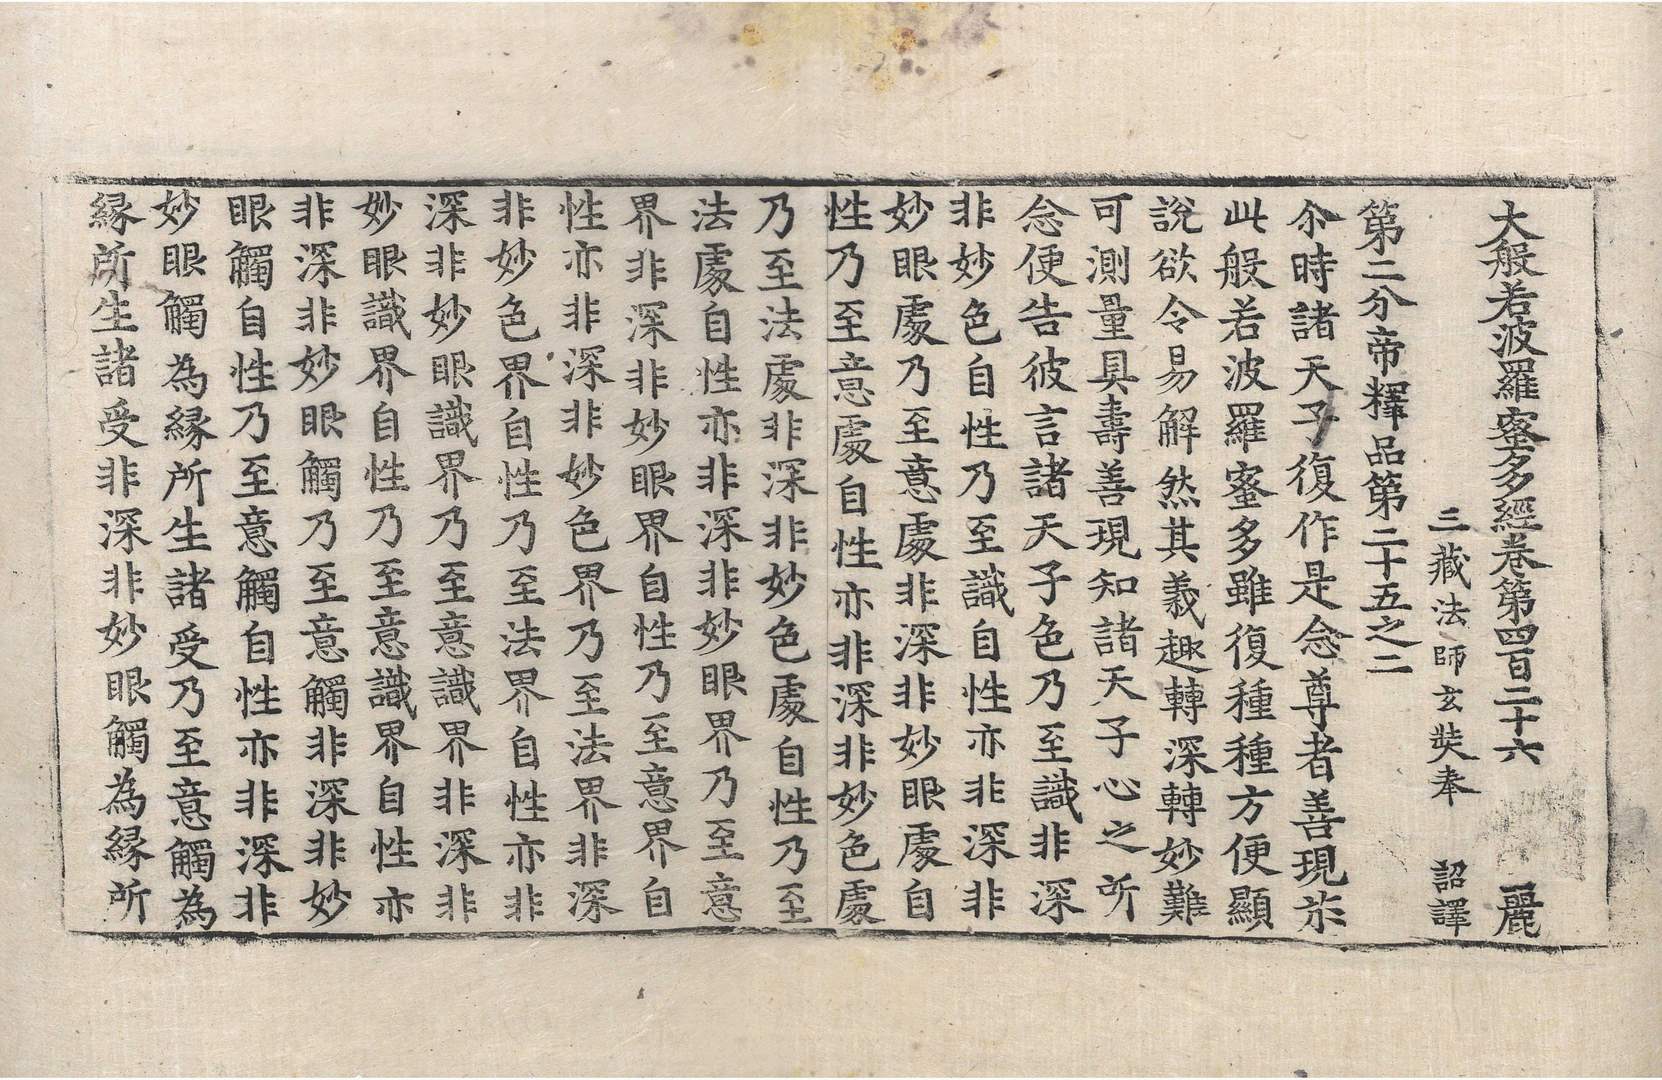 大般若波羅蜜多經卷第四百二十六 麗
三藏法師玄奘奉 詔譯
第二分帝釋品第二十五之二
尒時諸天子復作是念尊者善現於
此般若波羅蜜多雖復種種方便顯
說欲令易解然其義趣轉深轉妙難
可測量具壽善現知諸天子心之所
念便告彼言諸天子色乃至識非深
非妙色自性乃至識自性亦非深非
妙眼處乃至意處非深非妙眼處自
性乃至意處自性亦非深非妙色處
乃至法處非深非妙色處自性乃至
法處自性亦非深非妙眼界乃至意
界非深非妙眼界自性乃至意界自
性亦非深非妙色界乃至法界非深
非妙色界自性乃至法界自性亦非
深非妙眼識界乃至意識界非深非
妙眼識界自性乃至意識界自性亦
非深非妙眼觸乃至意觸非深非妙
眼觸自性乃至意觸自性亦非深非
妙眼觸為緣所生諸受乃至意觸為
緣所生諸受非深非妙眼觸為緣所